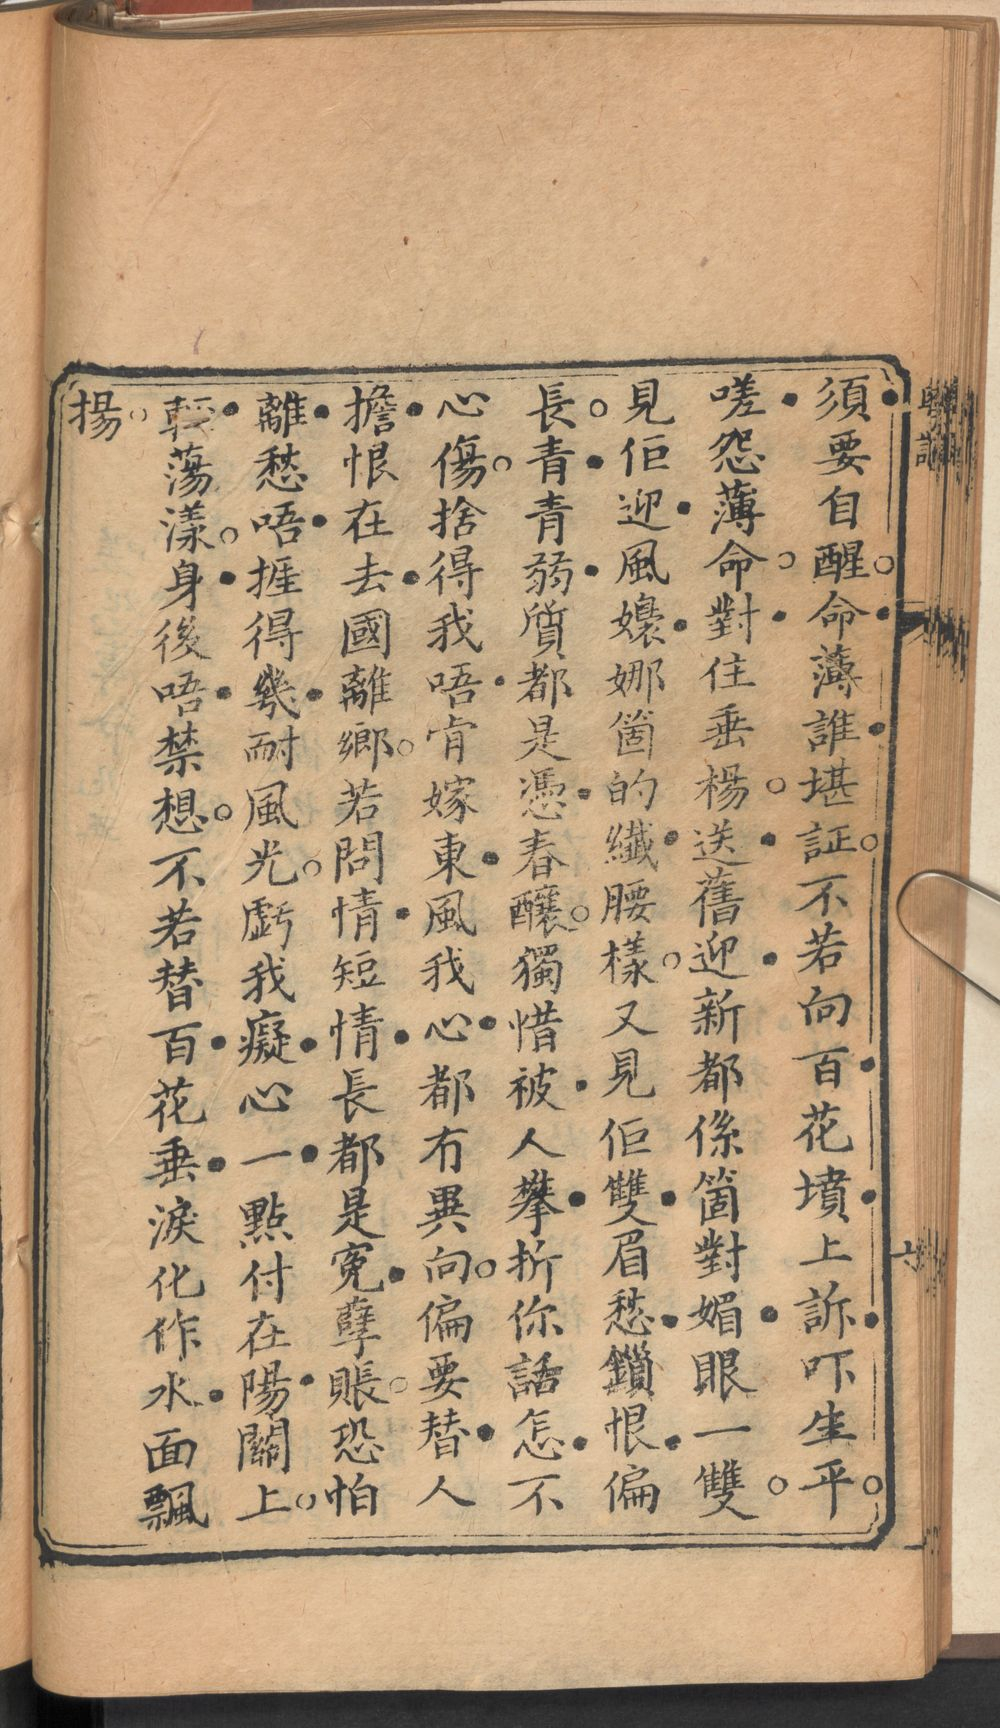 須要自醒命薄誰堪証不若向百花墳上訴吓生平
嗟怨薄命對住垂楊送舊迎新都係箇對媚眼一雙
見佢迎風嬝娜箇的纖腰樣又見佢雙眉愁鎖恨偏
長青青弱質都是憑春釀獨惜被人攀折你話怎不
心傷捨得我唔肯嫁東風我心都冇異向偏要替人
擔恨在去國離鄉若問情短情長都是寃孽賬恐怕
離愁唔捱得幾耐風光虧我癡心一點付在陽關上
輕蕩漾身後唔禁想不若替百花垂淚化作水面飄
揚